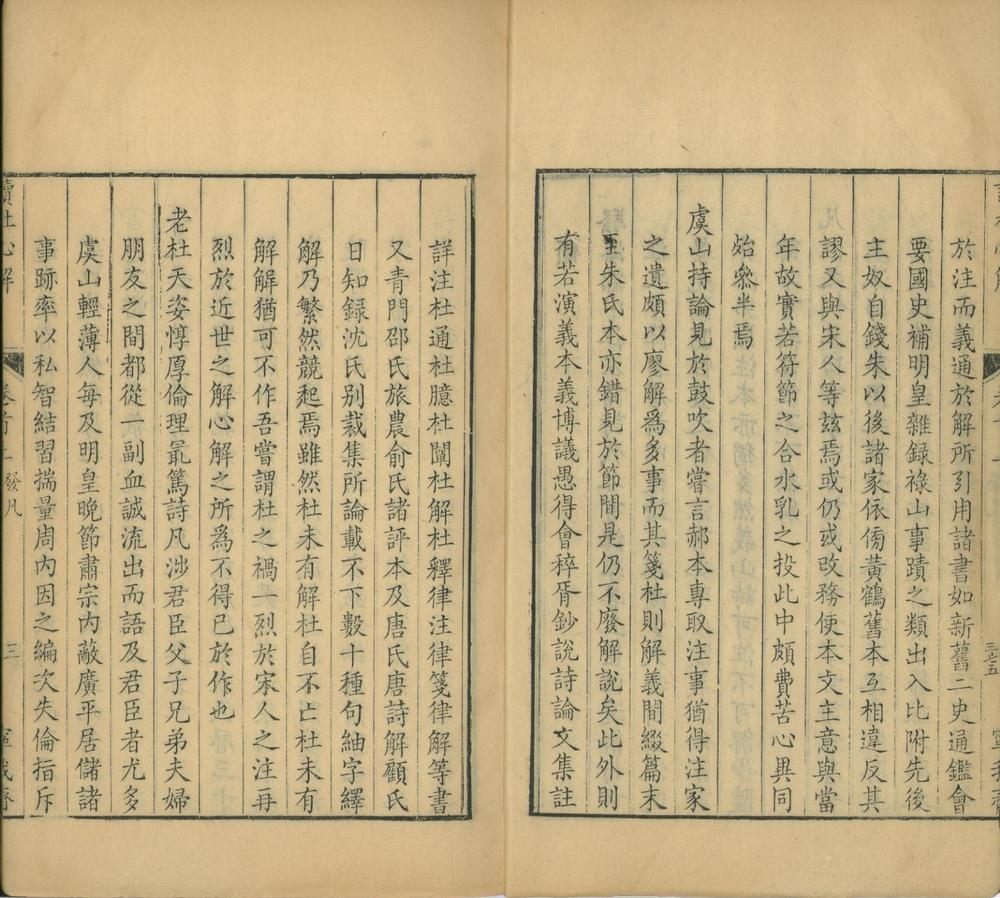 於注而義通於解所引用諸書如新舊二史通鑑會
要國史補明皇雜録祿山事蹟之類出入比附先後
主奴自錢朱以後諸家依傍黃鶴舊本互相違反其
謬又與宋人等玆焉或仍或改務使本文主意與當
年故實若符節之合水乳之投此中頗費苦心異同
始叅半焉
虞山持論見於鼓吹者嘗言郝本專取注事猶得注家
之遺頗以廖解爲多事而其箋杜則解義間綴篇末
至朱氏本亦錯見於節間是仍不廢解說矣此外則
有若演義本義博議愚得會稡胥鈔説詩論文集註
詳注杜通杜臆杜闡杜解杜釋律注律箋律解等書
又青門邵氏旅農俞氏諸評本及唐氏唐詩解顧氏
日知録沈氏别裁集所論載不下數十種句紬字繹
解乃繁然競起焉雖然杜未有解杜自不亡杜未有
解解猶可不作吾嘗謂杜之禍一烈於宋人之注再
烈於近世之解心解之所爲不得已於作也
老杜天姿惇厚倫理冣篤詩凡涉君臣父子兄弟夫婦
朋友之間都從一副血誠流出而語及君臣者尤多
虞山輕薄人每及明皇晚節肅宗内蔽廣平居儲諸
事跡率以私智結習揣量周内因之編次失倫指斥
讀杜心解
卷首
發凡
三